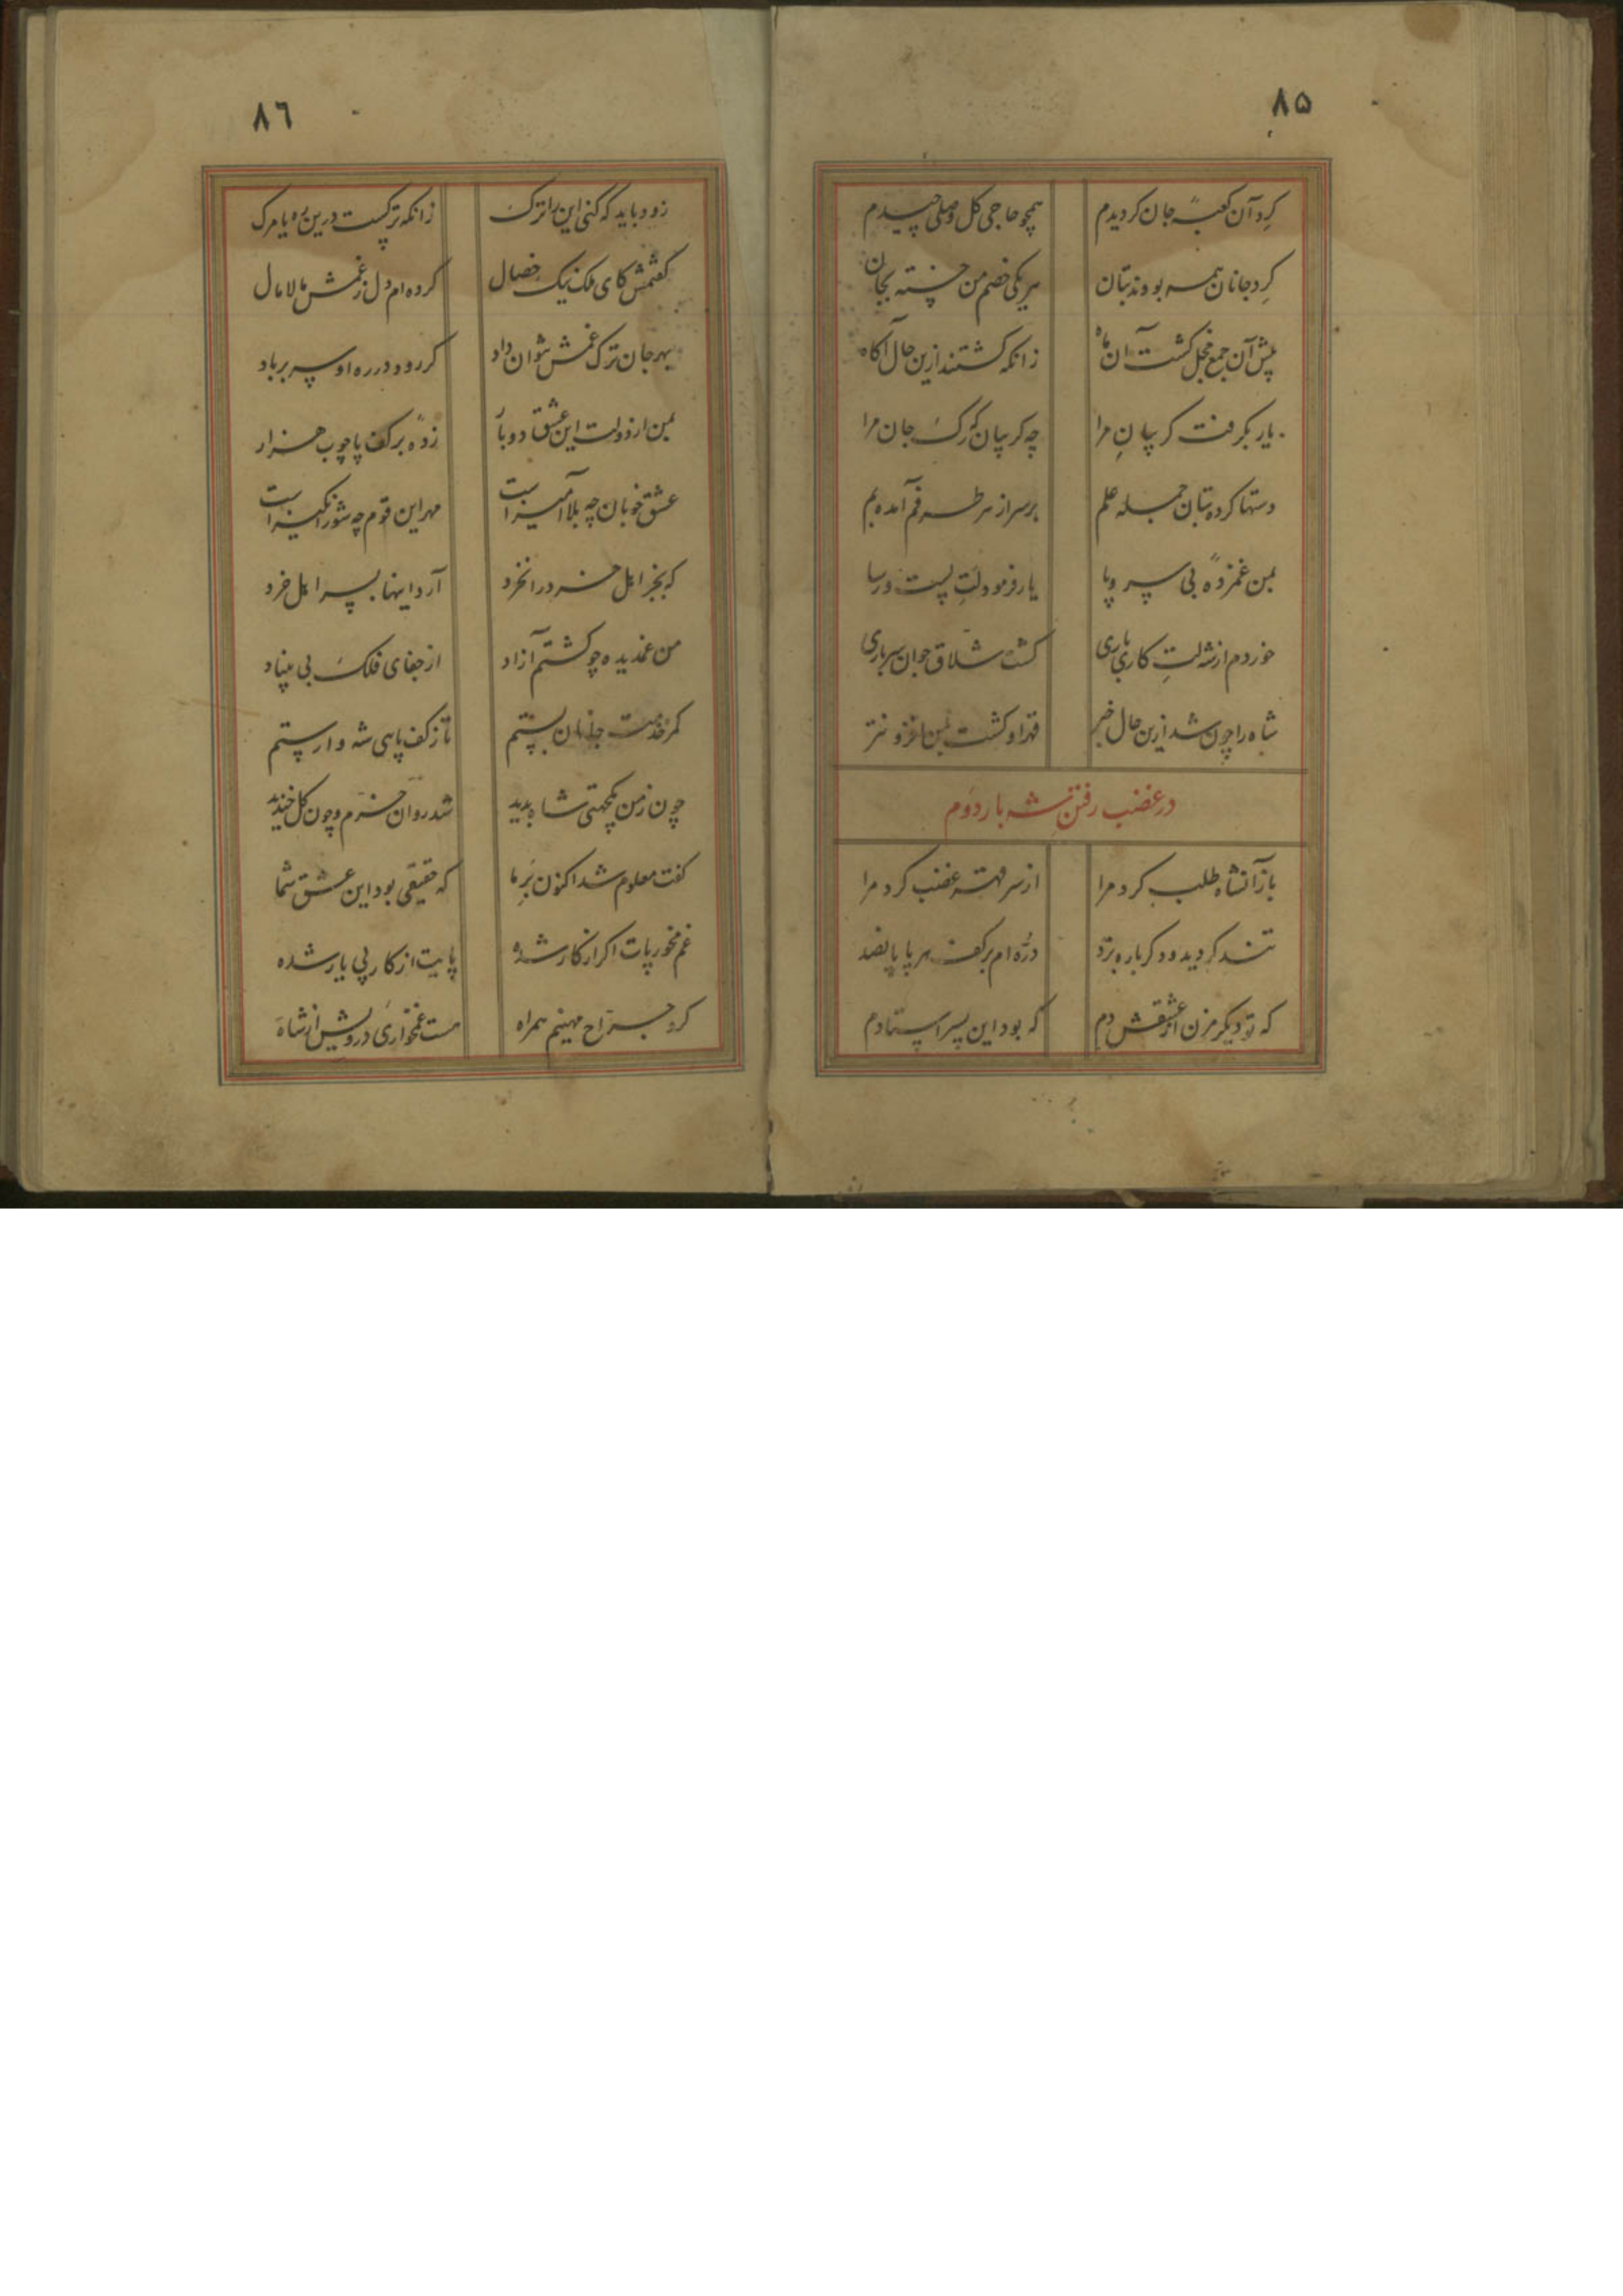 ٨۵
کرد آن کعبهٔ جان کردیدم همچو حاجی کل وصلی چیدم
کرد جانان همه بودند بتان هر یکی خصم من خسته بجان
پیش آن جمع خجل کشت آن ماه زانکه کشتند ازین حال آکاه
یار بکرفت کریبانِ مرا چه کریبان که رک جان مرا
دستها کرده بتان جمله علم بر سر از هر طرفم آمده بم
بمن غمزدهٔ بی سر و پا یار فرمود لتِ پست و رسا
خوردم از شه لتِ کاری باری کشته شلاق جوان سرباری
شاه را چون شد ازین حال خبر قهر او کشت بمن افزونتر
در غضب رفتنِ شه بار دوم
باز آنشاه طلب کرد مرا از سر قهر غضب کرد مرا
تند کردید و دکر باره بزد درّه ام بر کف هر پا پانصد
که تو دیکر مزن از عشقش دم که بود این پسر استادم
٨٦
زود باید که کنی این را ترک زانکه ترکست درین ره یا مرک
کفتمش کای ملک نیک خصال کرده ام دل ز غمش مالامال
بهر جان ترک غمش نتوان داد کر رود در ره او سر بر باد
بمن از دولت این عشق دو بار زده بر کف پا چوب هزار
عشق خوبان چه بلا آمیز است مهر این قوم چه شور انکیز است
که بجز اهل خرد را نخرد آرد اینها بسر اهل خرد
من غمدیده چو کشتم آزاد از جفای فلک بی بنیاد
کمر خدمت جانان بستم تا ز کف پاهی شه وارستم
چون ز من یکجهتی شاه بدید شد روان خرّم و چون کل خندید
کفت معلوم شد اکنون بَرِ ما که حقیقی بود این عشق شما
غم مخور پات اکر از کار شده پایت از کار پی یار شده
کرد جرّاح مهینم همراه هست غمخواری درویش از شاه